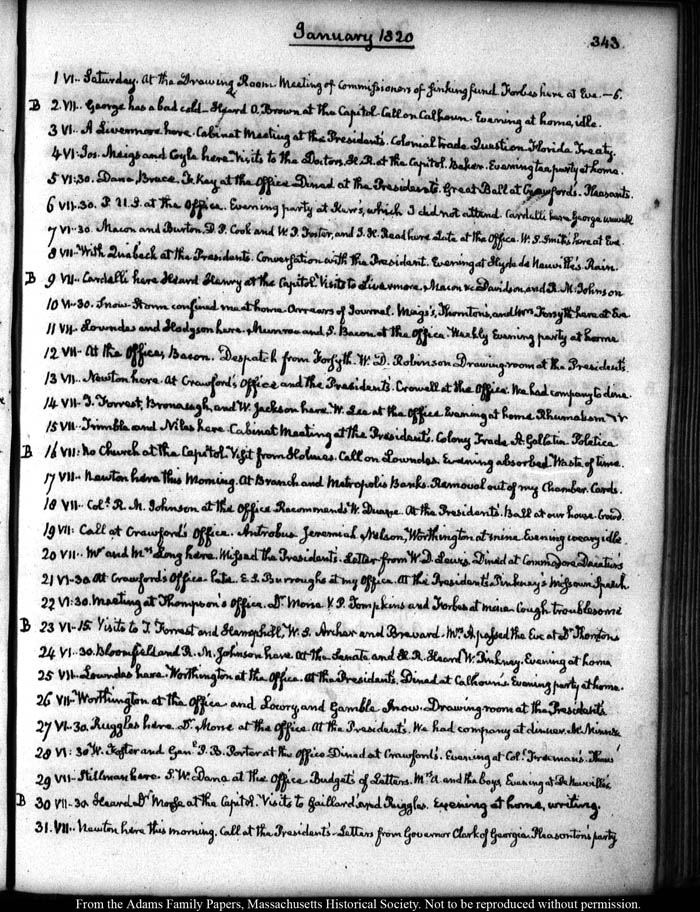 January 1820
343
1 VI.. Saturday. At the Drawing Room. Meeting of Commissioners of sinking fund Forbes here at Eve.—6.
B 2 VII.. George has a bad cold. Heard O. Brown at the Capitol. Call on Calhoun. Evening at home, idle.
3 VI.. A Livermore here. Cabinet Meeting at the President's. Colonial trade. Question. Florida Treaty.
4 VI: Jos. Meigs and Coyle here. Visits to the Doctors, H. R. at the Capitol. Baker. Evening tea party at home.
5 VI:30. Dana, Bruce. F. Key at the Office Dined at the Presidents. Great Ball at Crawford's. Pleasants.
6 VII.30. P. U.S. at the Office. Evening party at Kerr's, which I did not attend. Cardelli here George unwell
7 VI.30. Macon and Burton. D. P. Cook and W. P. Foster, and J. H. Read here Late at the Office. W. S. Smith's here at Eve
8 VII. With at the Presidents. Conversation with the President. Evening at Hyde de Neuville's. Rain.
B 9 VII.. Cardelli here Heard Henry at the Capitol. Visits to Livermore, Macon &c Davidson, and R. M. Johnson
10 VI.30. Snow-Storm confined me at home. Arrears of Journal. Meigs's, Thornton's, and Forsyth here at Eve
11 VII. Lowndes and Hodgson here. Munroe and S. Bacon at the Office Weekly Evening party at home
12 VII. At the Office, Bacon. Despatch from Forsyth. W. D. Robinson Drawing room at the President's.
13 VII.. Newton here. At Crawford's Office and the President's. Crowell at the Office. We had company to dine.
14 VII. T. Forrest, Bronaugh, and W. Jackson here. W. Lee at the Office Evening at home Rheumatism
15 VII.. Trimble and Niles here. Cabinet Meeting at the President's. Colony Trade A. Gallatin Poletica
B 16 VII: No Church at the Capitol. Visit from Holmes. Call on Lowndes. Evening absorbed. Waste of time.
17 VII.. Newton here this Morning. At Branch and Metropolis Banks. Removal out of my Chamber. Cards.
18 VII. Coll. R. M. Johnson at the Office Recommends W. Duane. At the President's. Ball at our house. Crowd.
19 VII: Call at Crawford's Office. Antrobus Jeremiah Nelson, Worthington at mine Evening weary idle.
20 VII.. Mr and Mrs Long here. Missed the President's. Letter from W. D. Lewis. Dined at Commodore Decatur's
21 VI.30 At Crawford's Office. late. E. S. Burroughs at my Office. At the President's. Pinkney's Missouri Speech
22 VI:30. Meeting at Thompson's Office. Dr Morse V. P. Tompkins and Forbes at mine Cough troublesome
B 23 VI.15. Visits to T. Forrest and Hemphill, W. S. Archer and Brevard. Mrs A passed the Eve at Dr Thorntons
24 VI.30. Bloomfield and R. M. Johnson here. At the Senate and H. R. Heard W. Pinkney. Evening at home
25 VII.. Lowndes here. Worthington at the Office. At the Presidents. Dined at Calhoun's Evening party at home.
26 VII. Worthington at the Office and Lowry, and Gamble Snow. Drawing room at the Presidents
27 VI.30. Ruggles here. Dr Morse at the Office. At the President's. We had company at dinner.
28 VI:30 W. Foster and Genl P. B. Porter at the Office Dined at Crawford's. Evening at Coll Freeman's. Thaw
29 VII. Hillman here. S. W. Dana at the Office Budgets of Letters. Mrs A. and the boys, Evening at De Neuville's
B 30 VII.30 Heard Dr Morse at the Capitol. Visits to Gaillard and Ruggles. Evening at home, writing.
31. VII.. Newton here this morning. Call at the President's. Letters from Governor Clark of Georgia. Pleasonton's party
From the Adams Family Papers, Massachusetts Historical Society. Not to be reproduced without permission.